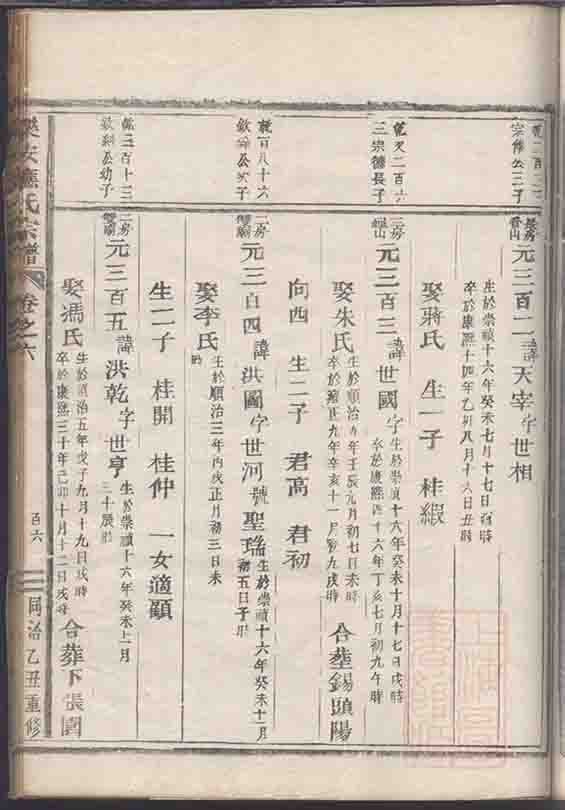 宗德公三子
長房
元三百二諱天宰字世相
生於崇禎十六年癸未七月十七日
卒於康熙十四年乙卯八月十六日丑時
娶蔣氏 生一子 桂綬
乾叉二百六
三宗德長子
三房
元三百三諱世國字
生於崇禎十六年癸未十月十七日戌時
卒於康熙四十六年丁亥七月初九午時
娶朱氏
生於順治九年壬辰九月初七日未時
卒於雍正九年辛亥十一月初九戌時
合葬錫頭陽
向西 生二子 君高 君初
乾百八十六
欽公次子
二房
元三百四諱洪圖字世河號聖瑞
生於崇禎十六年癸未十二月
初五日子時
娶李氏
生於順治三年丙戌正月初三日未
時
生二子 桂開 桂仲 一女適顧
百十三
欽公幼子
二房
元三百五諱洪乾字世亨
生於崇禎十六年癸未十二月
三十辰時
娶馮氏
生於順治五年戊子九月十九日戌時
卒於康熙三十年己卯十月十二日戌時
合葬下張園
樂安孫氏宗譜
卷之六
百六
同治乙丑重修